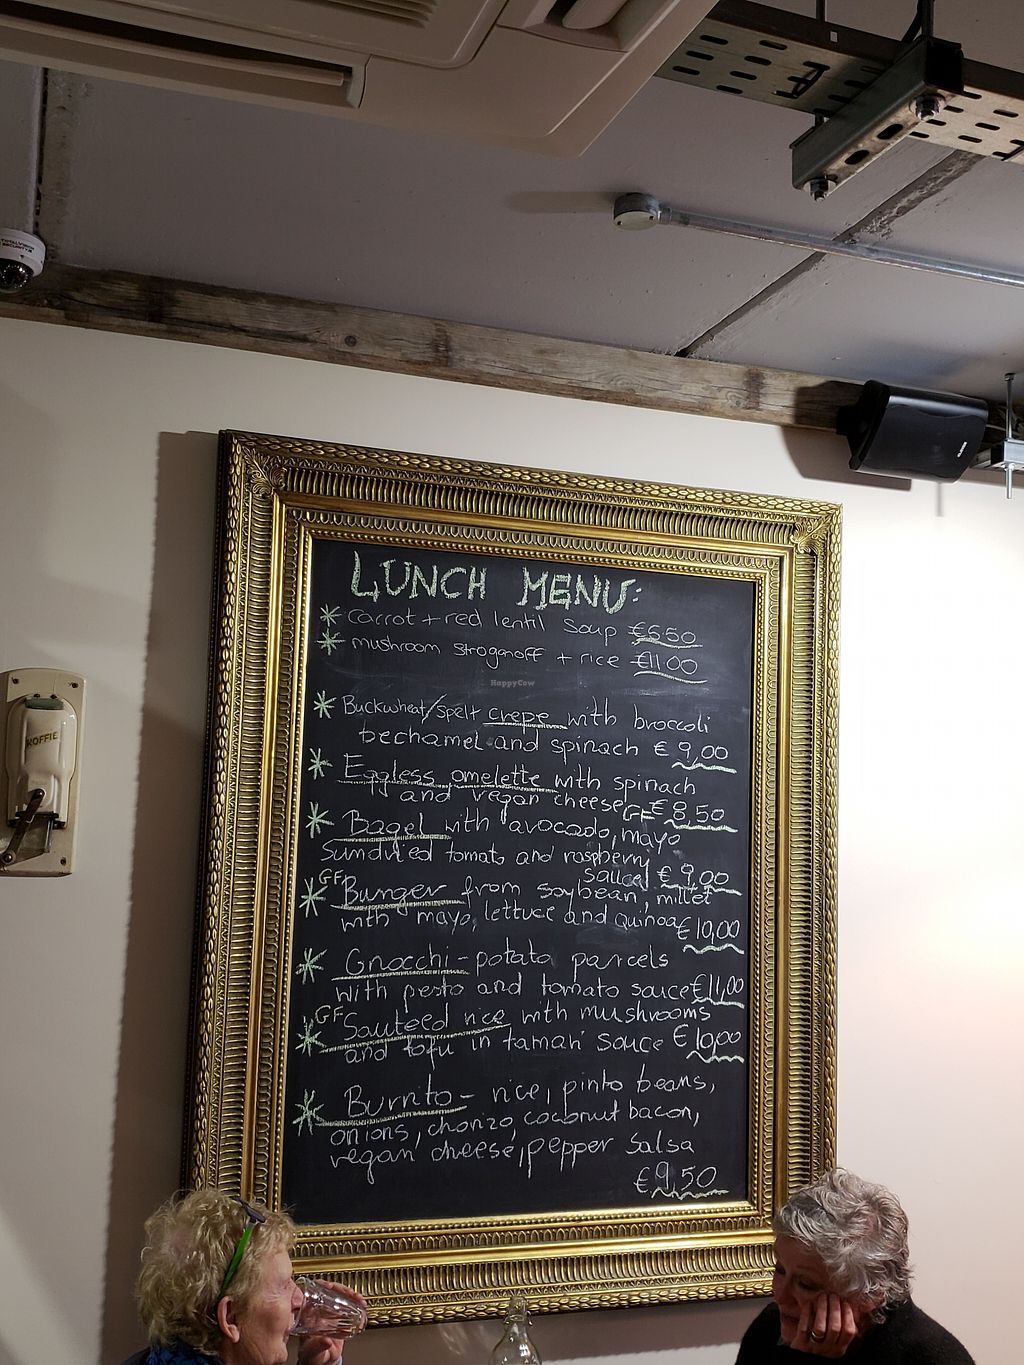 TOTALVISION
SECURITY.IE
KOFFIE
LUNCH MENU:
* carrot + red lentil Soup €6.50
* mushroom stroganoff + rice €11.00
HappyCow
* Buckwheat/Spelt crepe with broccoli
bechamel and spinach € 9,00
* Eggless omelette with spinach
and vegan cheese GF € 8,50
* Bagel with avocado, mayo
Sundried tomato and raspberry
sauce € 9,00
* GF Burger from soybean, millet
with mayo, lettuce and quinoa € 10,00
* Gnocchi - potato parcels
with pesto and tomato sauce €11,00
* GF Sauteed rice with mushrooms
and tofu in tamari sauce € 10,00
* Burrito - rice, pinto beans,
onions, chorizo, coconut bacon,
vegan cheese, pepper salsa
€9,50